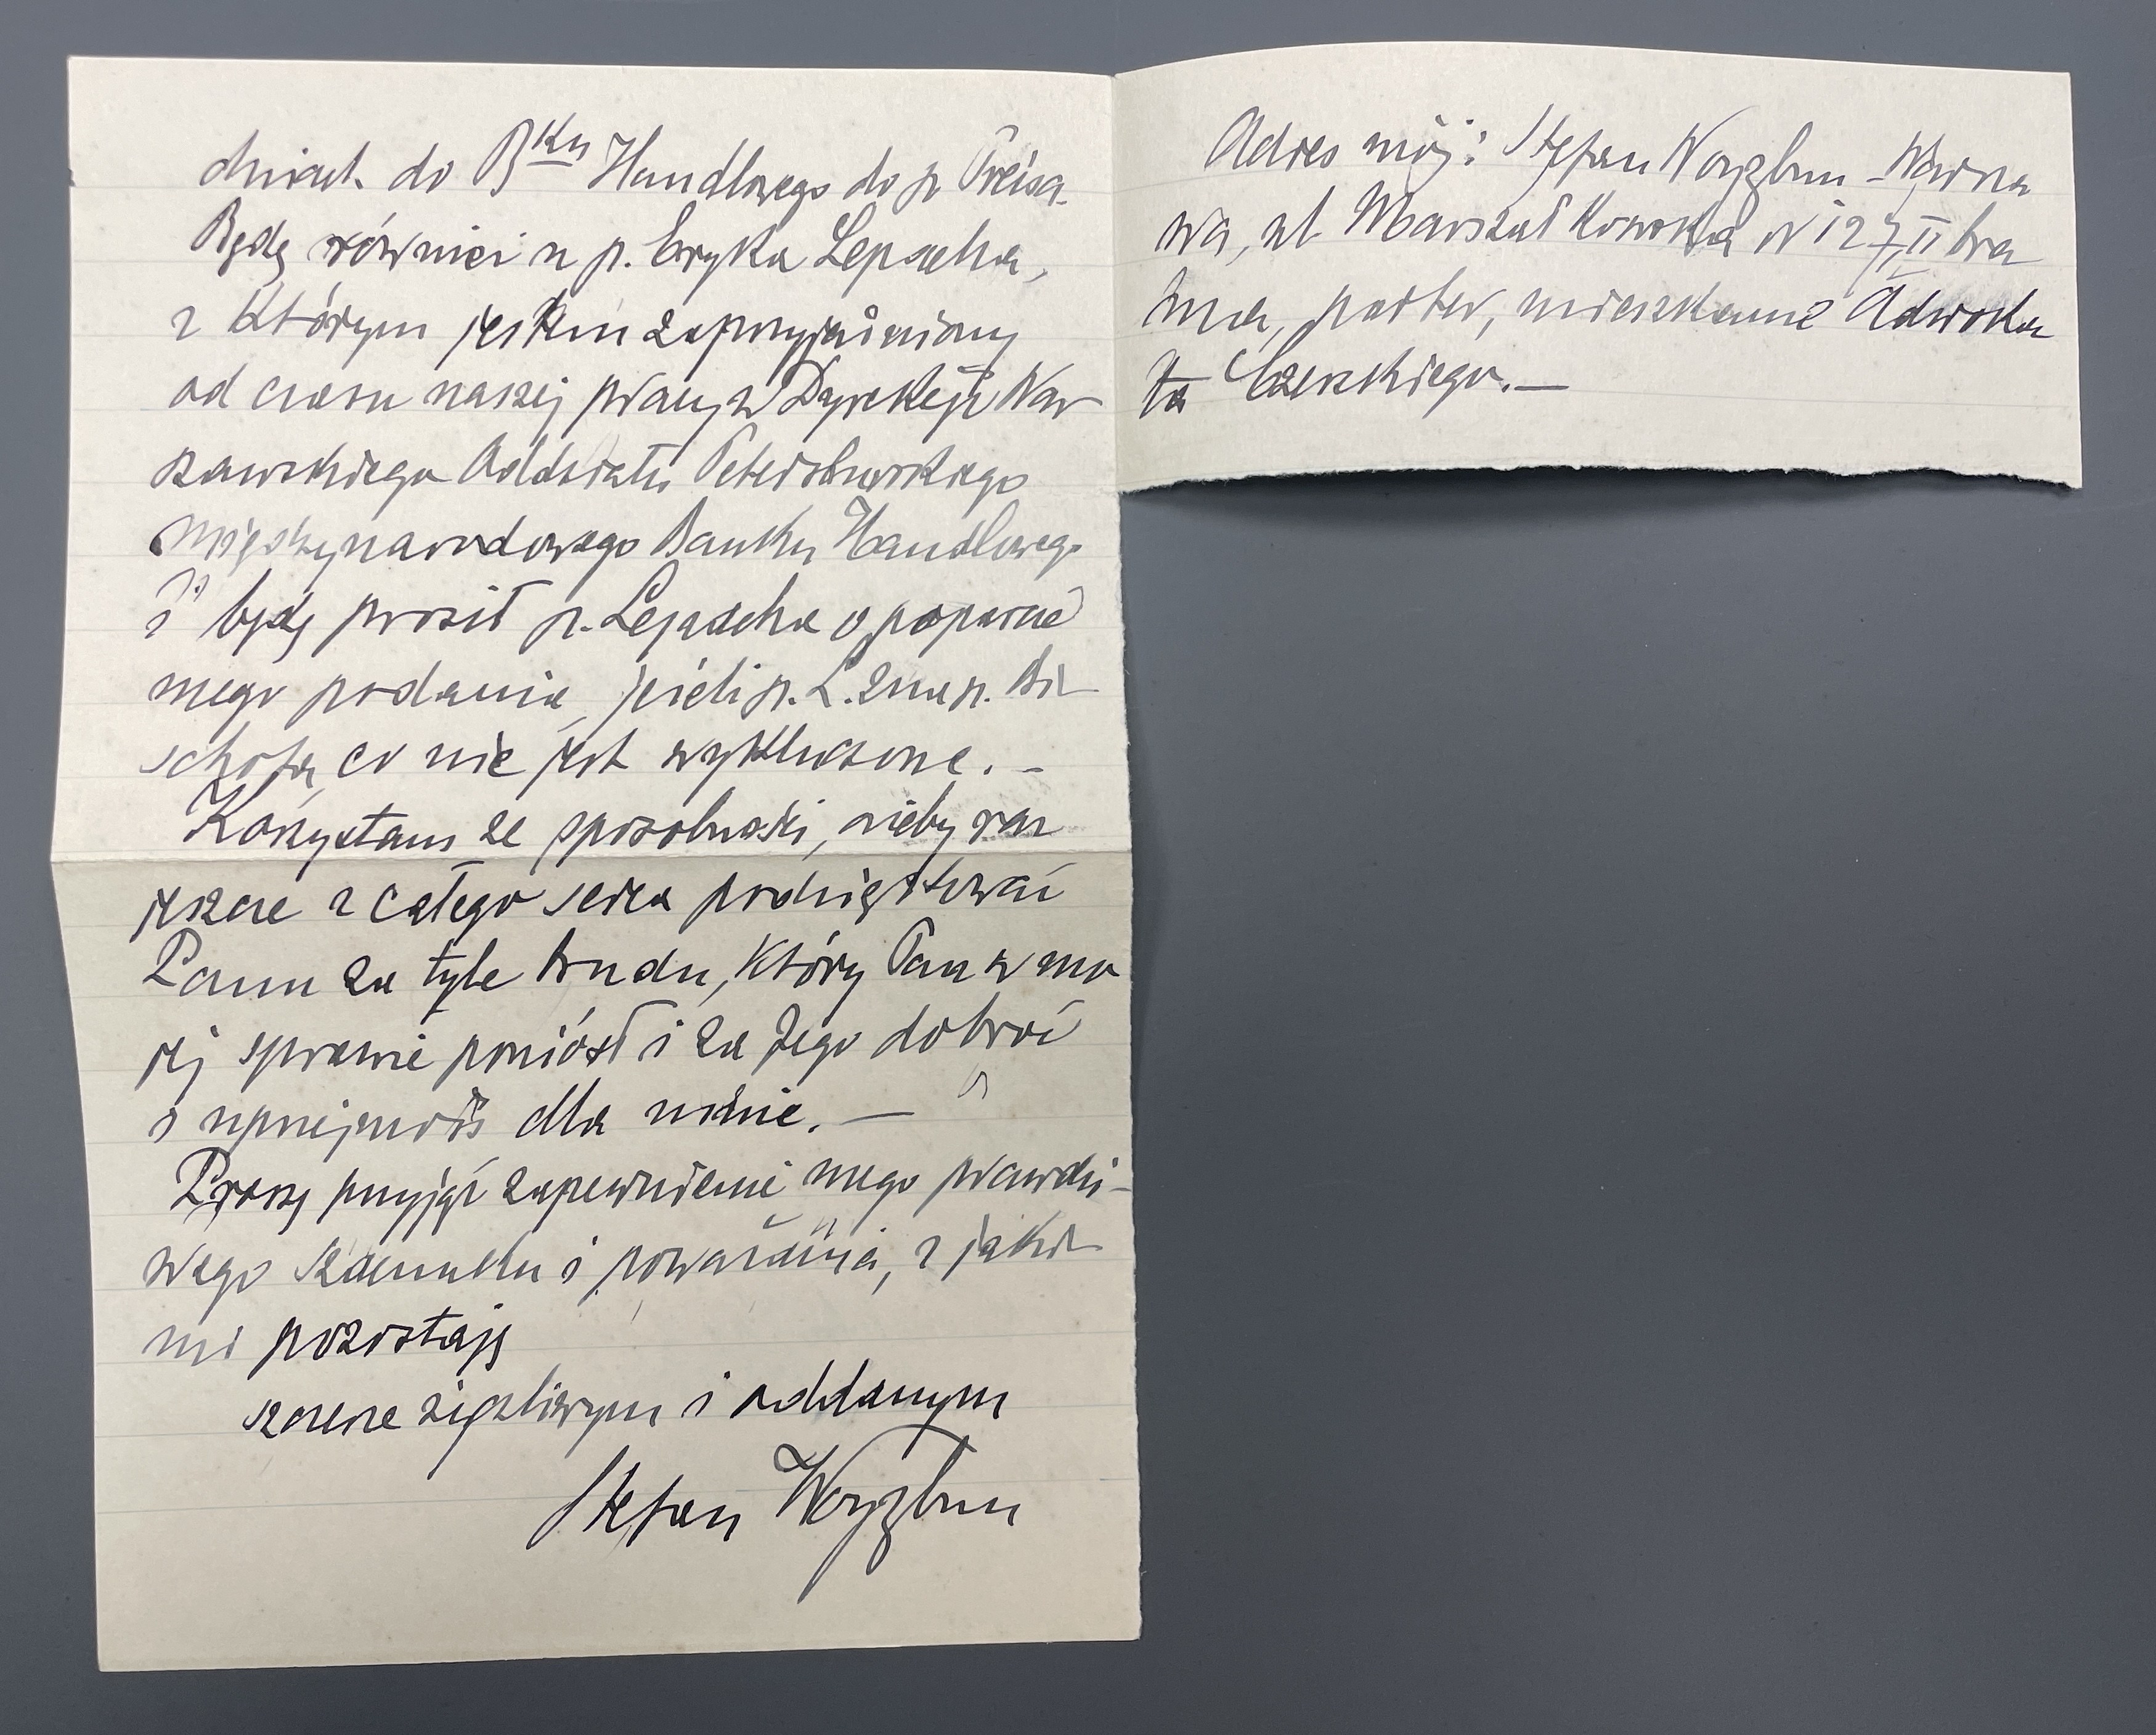 dniach do Bku Handlowego do p Preisa.
Będę również u p. Eryka Lepacha,
z którym jestem zaprzyjaźniony
od czasu naszej pracy w Dyrekcji War
szawskiego Oddziału Petersburskiego
Międzynarodowego Banku Handlowego
i będę prosił p. Lepacha o poparcie
mego podania, jeżeli p. L. zna p. Bi-
schofa, co nie jest wykluczone. –
Korzystam ze sposobności, ażeby raz
jeszcze z całego serca podziękować
Panu za tyle trudu, który Pan w mo
jej sprawie poniósł i za Jego dobroć
i uprzejmość dla mnie. —
Proszę przyjąć zapewnienie mego prawdzi-
wego szacunku i poważania, z jaki-
mi pozostaję
szczerze życzliwym i oddanym
Stefan
Adres mój: Stefan – Warsza
wa, ul Marszałkowska N 127, II bra
ma, parter, mieszkanie Adwoka
ta Czerskiego. —